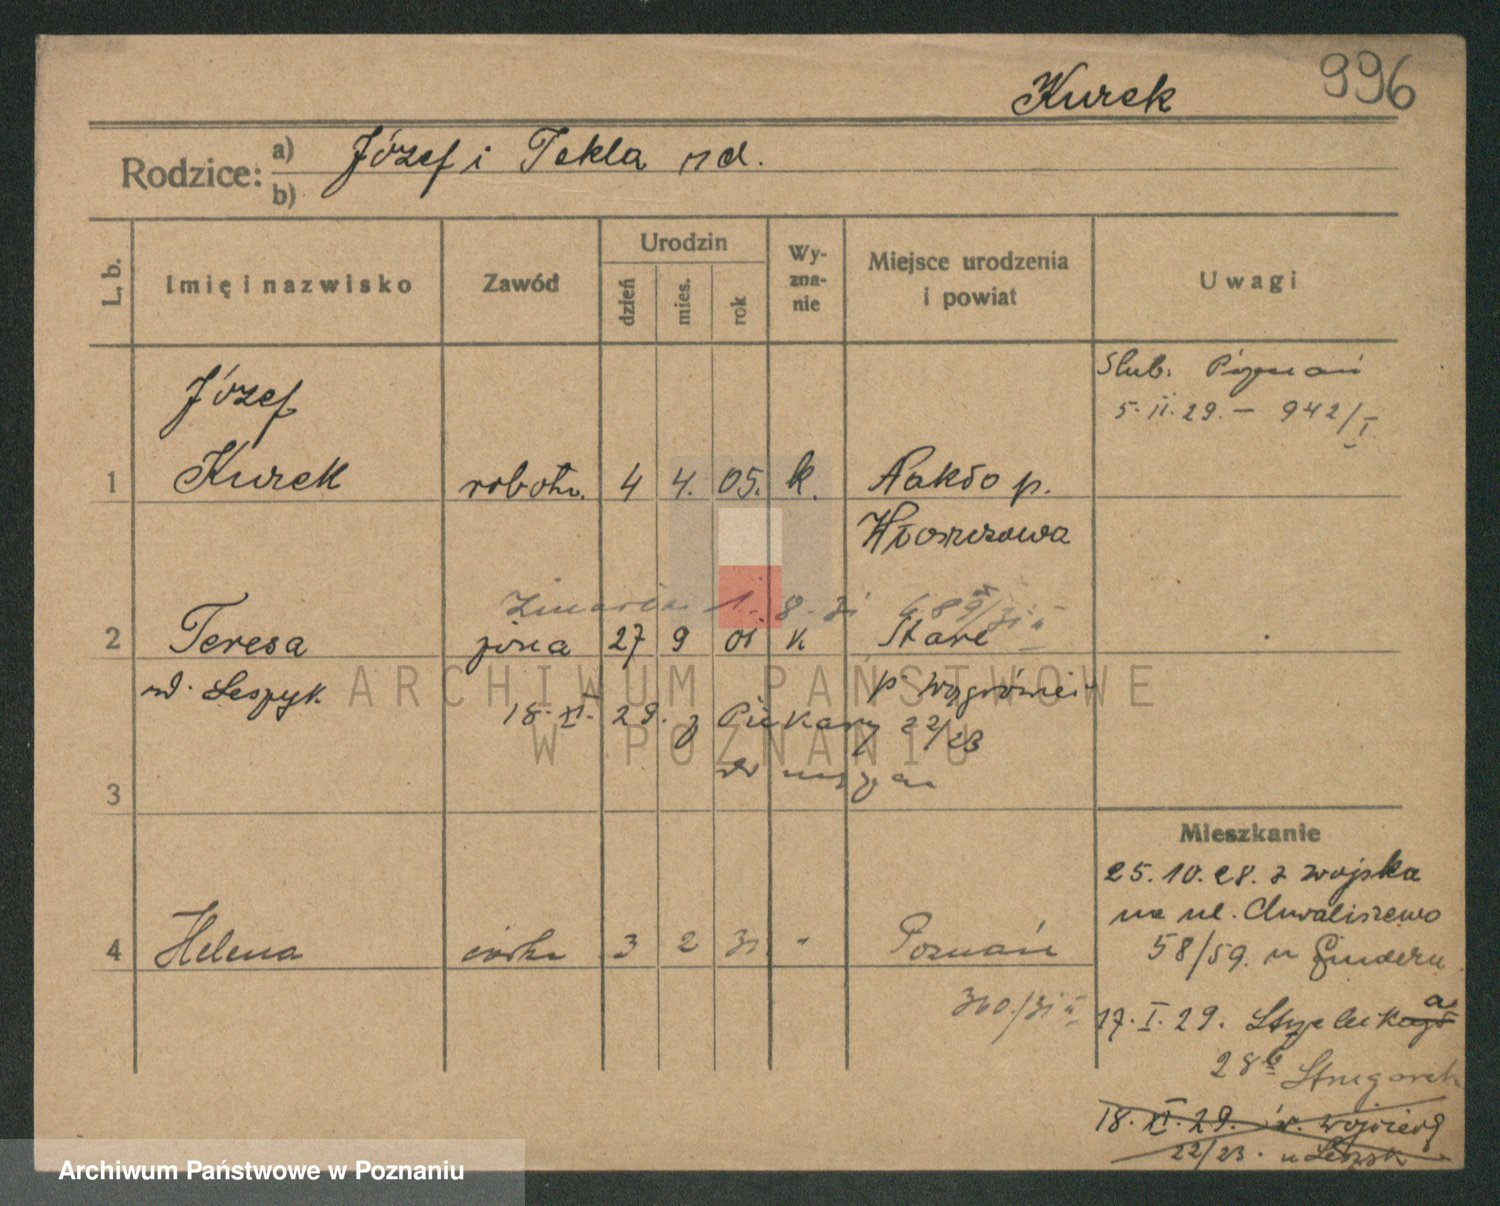 Kurek 996
Rodzice: a) Józef i Tekla nd.
b)
L. b. Imię i nazwisko Zawód Urodzin dzień mies. rok Wyznanie Miejsce urodzenia i powiat Uwagi
Ślub. Poznań
5.II.29. — 942/I.
Józef
1 Kurek robotn. 4 4. 05. k. Nakło p.
Włoszczowa
Zmarła 1. 8. 31
2 Teresa żona 27 9 01 k Stare
nd. Leszyk p. Wągrówiec
18. XI. 29. z Piekary 22/23
3
Mieszkanie
25.10.28. z wojska
na ul. Chwaliszewo
58/59. u
4 Helena córka 3 2 31 - Poznań
360./31 II
17. I. 29. Strzelecka
28b
18. XI. 29. św. Wojciech
22/23. u Leszyk
ARCHIWUM PAŃSTWOWE
W POZNANIU
Archiwum Państwowe w Poznaniu